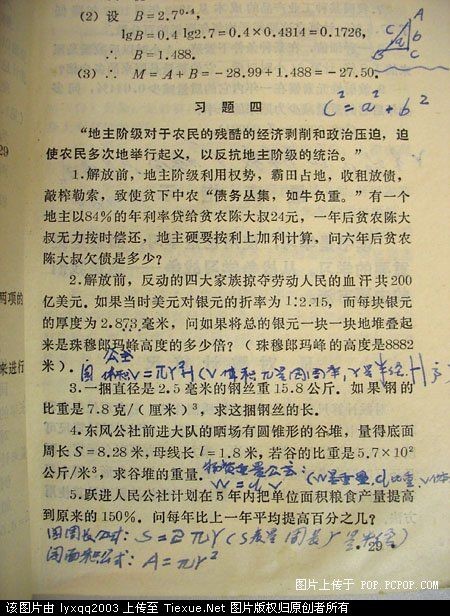 (2) 设 B=2.7^0.4,
lgB=0.4 lg2.7=0.4×0.4314=0.1726,
∴ B=1.488.
(3) ∴ M=A+B=-28.99+1.488=-27.50.
A
C
b
a
B
C
习题四
c²=a²+b²
“地主阶级对于农民的残酷的经济剥削和政治压迫，迫
使农民多次地举行起义，以反抗地主阶级的统治。”
29
1.解放前，地主阶级利用权势，霸田占地，收租放债，
敲榨勒索，致使贫下中农“债务丛集，如牛负重。”有一个
地主以84%的年利率贷给贫农陈大叔24元，一年后贫农陈大
叔无力按时偿还，地主硬要按利上加利计算，问六年后贫农
陈大叔欠债是多少？
2.解放前，反动的四大家族掠夺劳动人民的血汗共200
两项的
亿美元．如果当时美元对银元的折率为1:2.15，而每块银元
的厚度为2.873毫米，问如果将总的银元一块一块地堆叠起
来是珠穆郎玛峰高度的多少倍？（珠穆郎玛峰的高度是8882
来进行
米）．
公式
体积V=πr²H(V体积 π是圆周率，r是半径 H
3.一捆直径是2.5毫米的钢丝重15.8公斤．如果钢的
比重是7.8克/（厘米）³，求这捆钢丝的长．
4.东风公社前进大队的晒场有圆锥形的谷堆，量得底面
周长S=8.28米，母线长l=1.8米，若谷的比重是5.7×10²
公斤/米³，求谷堆的重量．
W=d.V
5.跃进人民公社计划在5年内把单位面积粮食产量提高
到原来的150%．问每年比上一年平均提高百分之几？
圆周长公式: S=2πr (S表是圆长 r是半径)
圆面积公式: A=πr²
29
图片上传于 POP.PCPOP.COM
该图片由 lyxqq2003 上传至 Tiexue.Net 图片版权归原创者所有